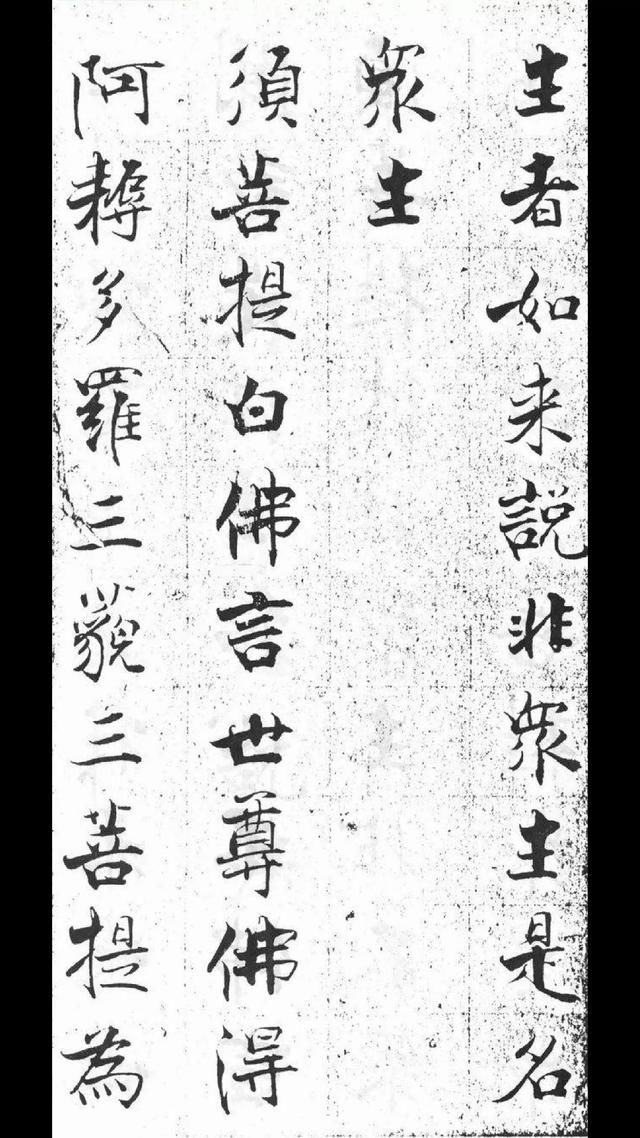 生者如来說非衆生是名
衆生
須菩提白佛言世尊佛得
阿耨多羅三藐三菩提為